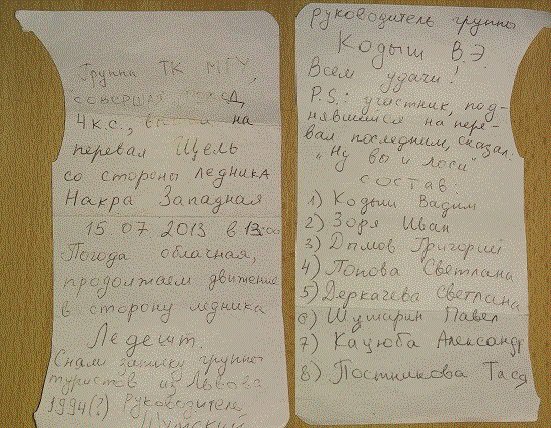 Группа ТК МГУ,
совершая поход,
4 к.с., вышли на
перевал Щель
со стороны ледника
Накра Западная
15 07 2013 в 13:00
Погода облачная,
продолжаем движение
в сторону ледника
Ледешт.
Сняли записку группы
туристов из Львова
1994(?) Руководитель
руководитель группы
Кодыш В.Э
Всем удачи!
P.S.: участник, под-
нявшийся на пере-
вал последним, сказал:
"Ну вы и лоси"
состав:
1) Кодыш Вадим
2) Зоря Иван
3) Дымов Григорий
4) Попова Светлана
5) Деркачева Светлана
6) Шушарин Павел
7) Кацюба Александр
8) Постникова Тася